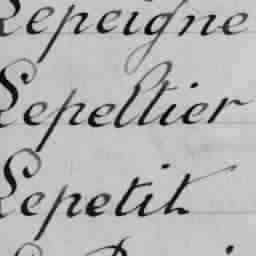 Lepeigne
Lepeltier
Lepetit